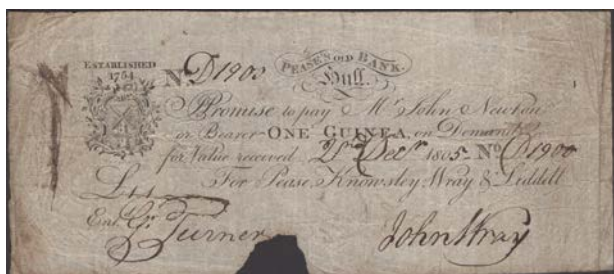 ESTABLISHED
1754
PEASE'S OLD BANK.
Hull.
No. D1900
I Promise to pay Mr. John Newton
or Bearer ONE GUINEA, on Demand
for Value received Decr 1805 No D1900
For Pease, Knowsley, Wray & Liddell
Ent. Turner
John Wray